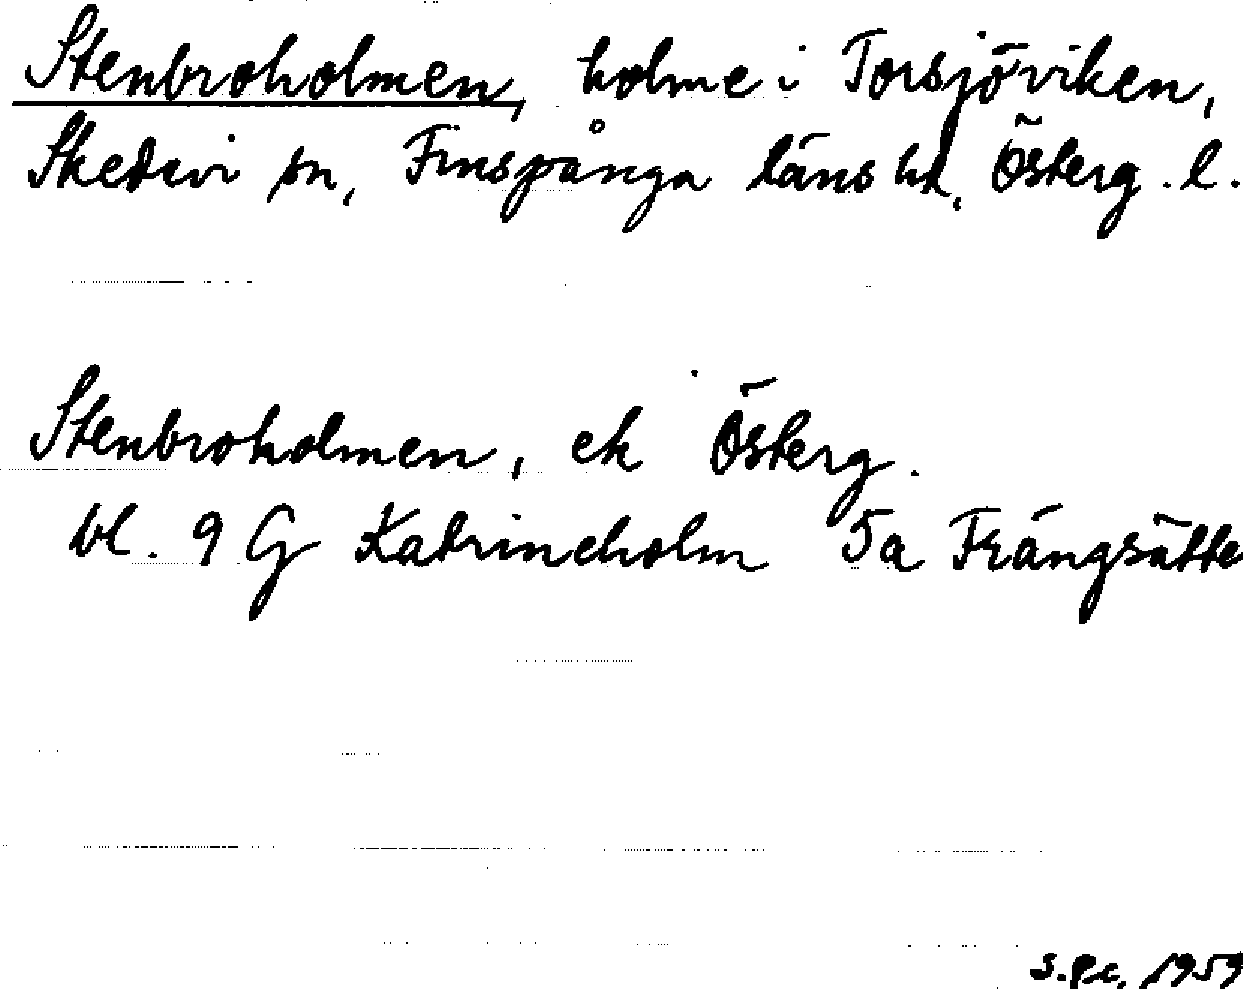 Stenbroholmen, holme i Torsjöviken,
Skedevi sn, Finspånga läns hd, Österg. l.
Stenbroholmen, ek Österg.
bl. 9 G Katrineholm 5a Frängsätte
1959